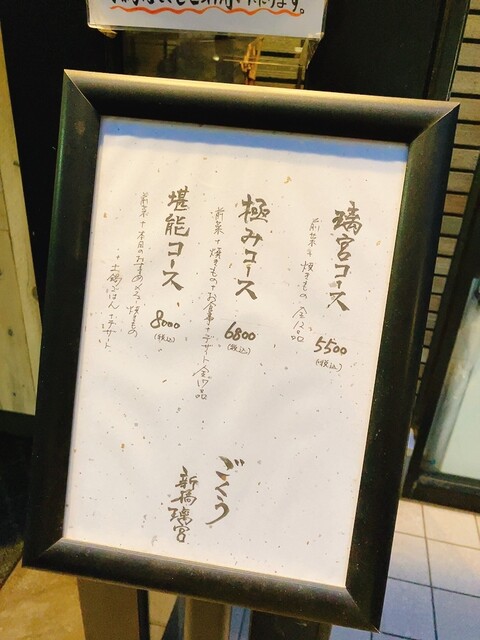 璃宮コース
前菜+焼きもの 全12品
5500
(税込)
極みコース
前菜+焼きもの+お食事+デザート全17品
6800
(税込)
堪能コース
前菜+本日のおすすめメニュー+焼きもの
+土鍋ごはん+デザート
8000
(税込)
ごくう
新橋璃宮